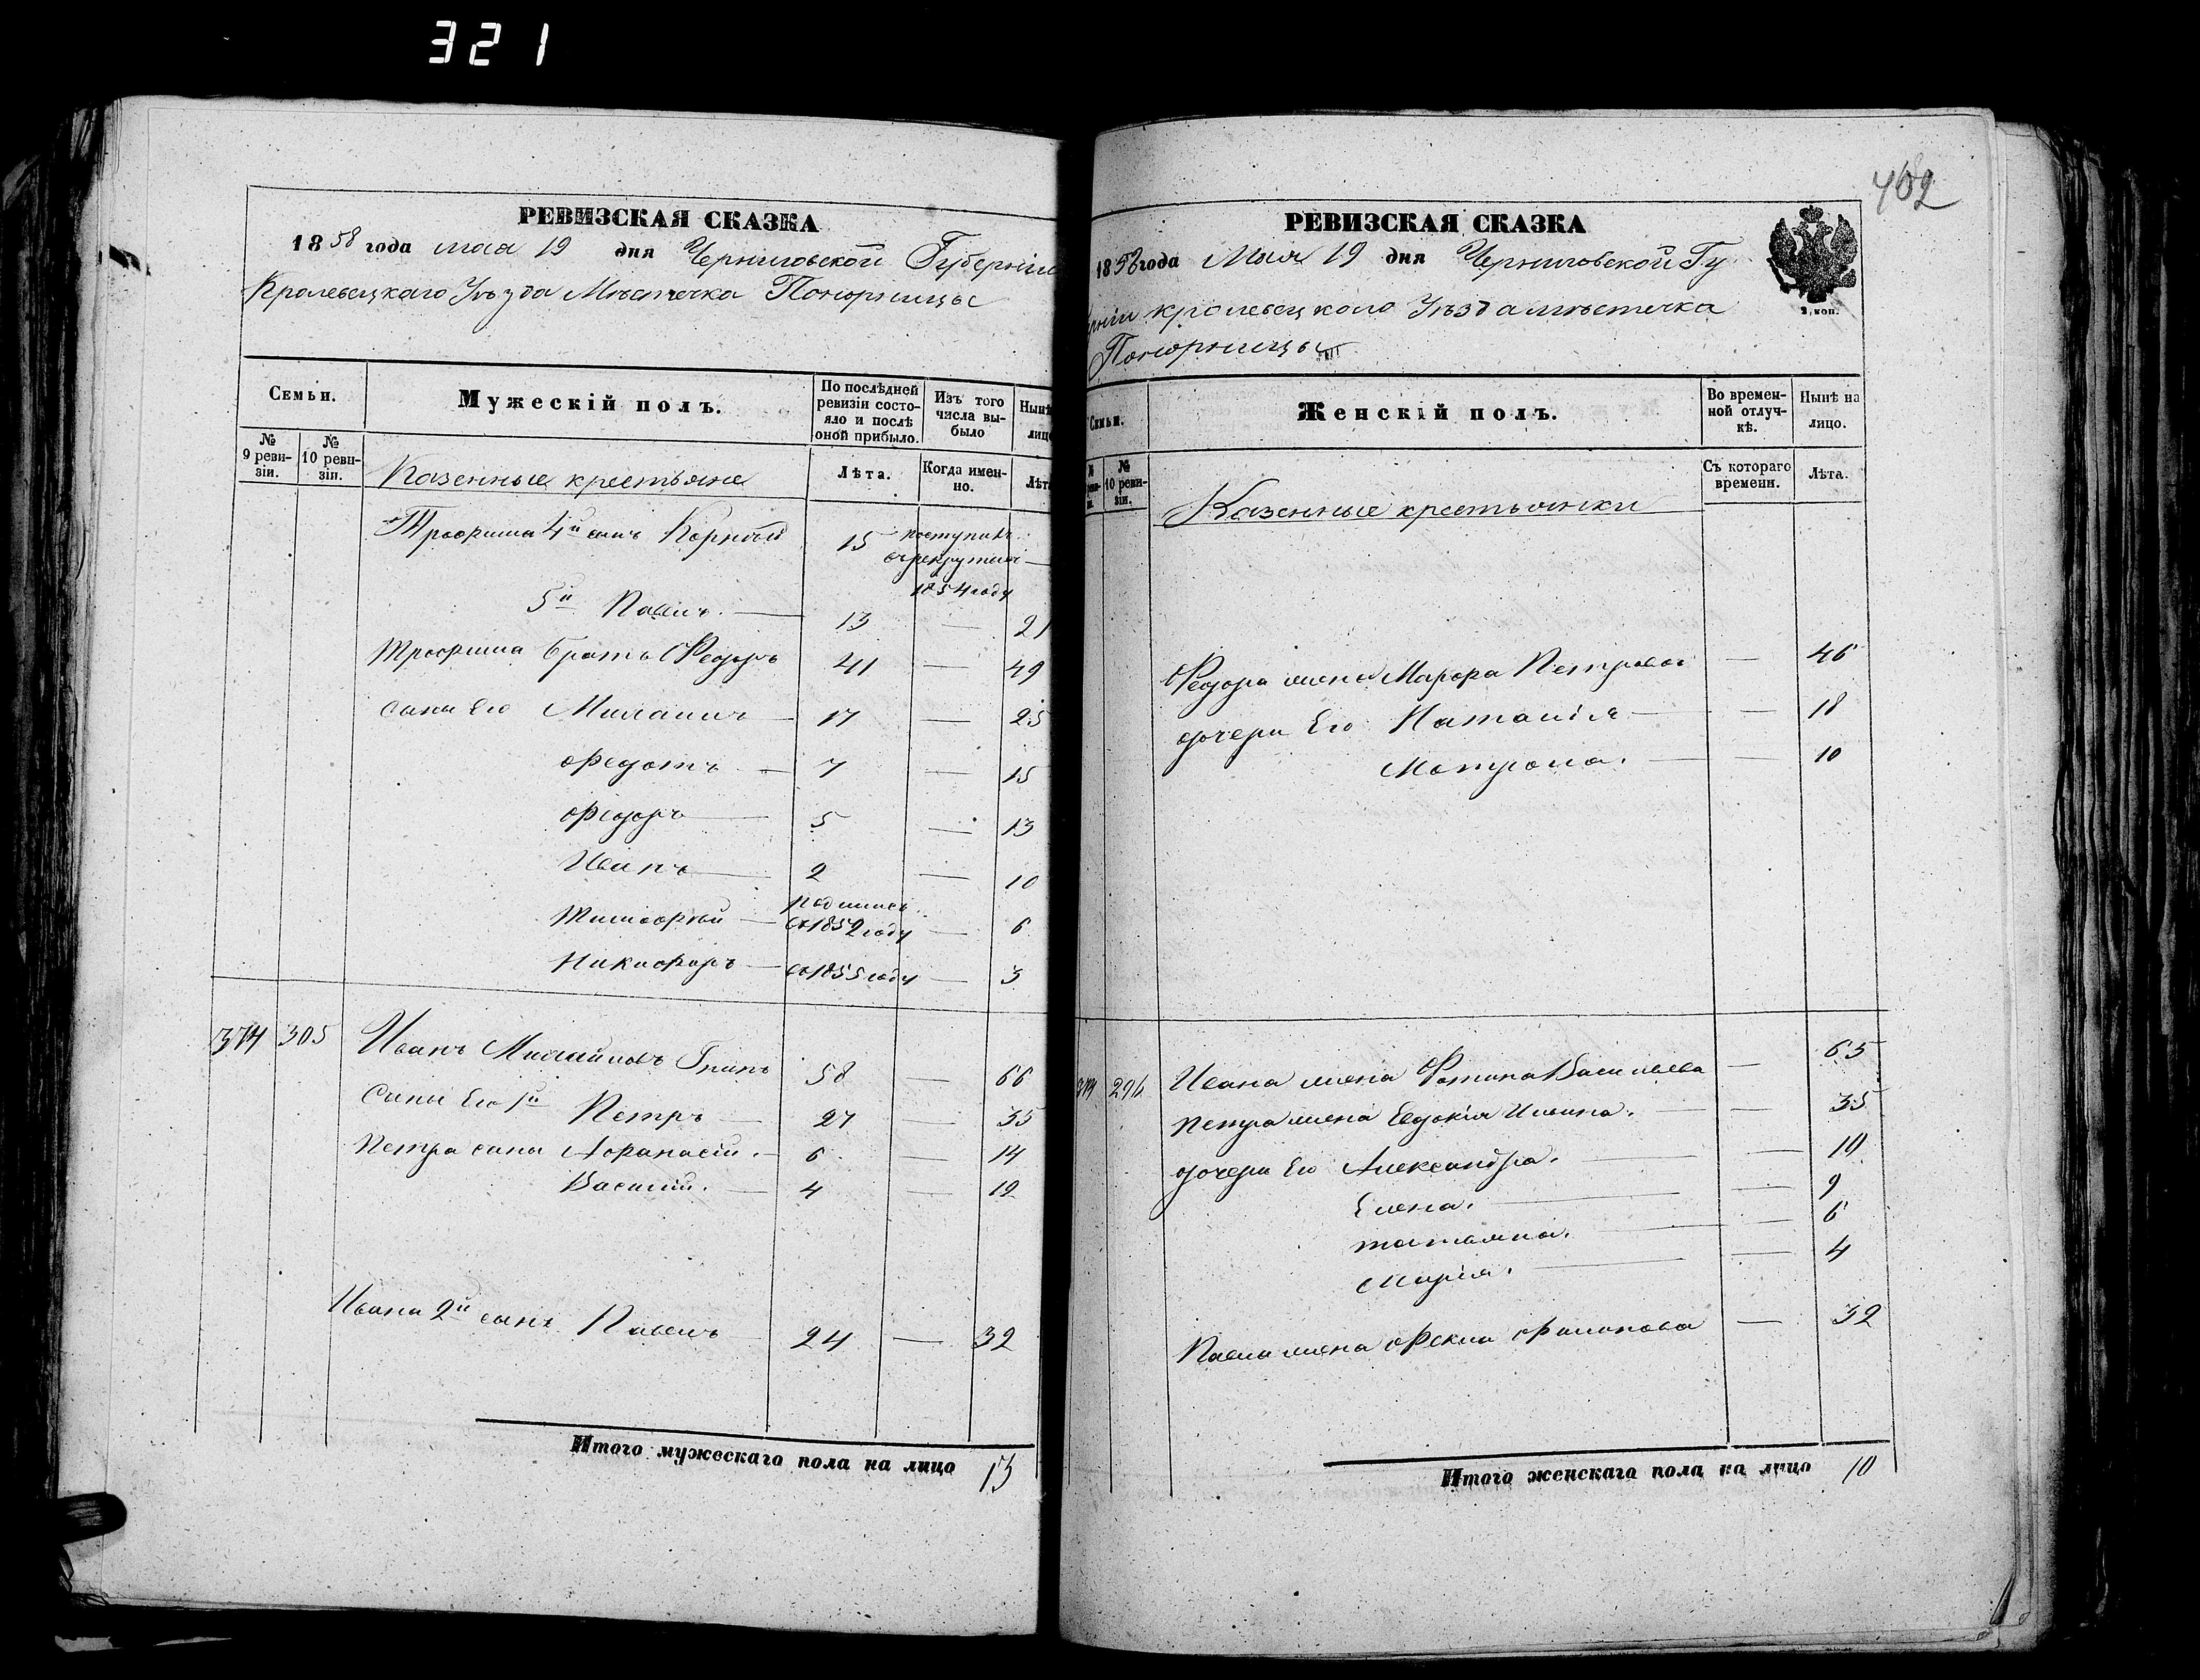 321
РЕВИЗСКАЯ СКАЗКА
1858 года мая 19 дня Черниговской Губерніи
Кролевецкаго Уѣзда Мѣстечка Понорницы
Семьи.
Мужескій полъ.
По послѣдней ревизіи состояло и послѣ оной прибыло.
Изъ того числа выбыло
Нынѣ лицо
№ 9 ревизіи.
№ 10 ревизіи.
Казенные крестьяне
Лѣта.
Когда именно.
Лѣта
Трофима 4й сынъ Корнѣй 15 поступилъ
въ рекруты
1854 году
5й Павелъ. 13 — 21
Трофима братъ Федоръ 41 — 49
сыны Его 17 — 25
Федотъ 7 — 15
Федоръ 5 — 13
Иванъ 2 — 10
Тимофѣй въ 1852 году — 6
Никифоръ въ 1855 году — 3
374 305 Иванъ Михайловъ 58 — 66
Сыны Его 1й Петръ 27 — 35
Петра сыны Афанасій. 6 — 14
Василій. 4 — 12
Ивана 2й сынъ Павелъ 24 — 32
Итого мужескаго пола на лицо 13
402
РЕВИЗСКАЯ СКАЗКА
1858 года Мая 19 дня Черниговской Гу
берніи кролевецкаго Уѣзда мѣстечка
Понорницы
2 коп.
Семьи.
Женскій полъ.
Во временной отлучкѣ.
Нынѣ на лицо.
№ 10 ревизіи.
Казенные крестьянки
Съ котораго времени.
Лѣта.
Федора жена Марфа Петрова — 46
дочери Его Наталія — 18
Матрона. — 10
374 296 Ивана жена Васильева — 65
Петра жена Евдокія Ильина. — 35
дочери Его Александра. — 10
Елена. — 9
татьяна. — 6
Марія. — 4
Павла жена Фекла Филипова — 32
Итого женскаго пола на лицо 10